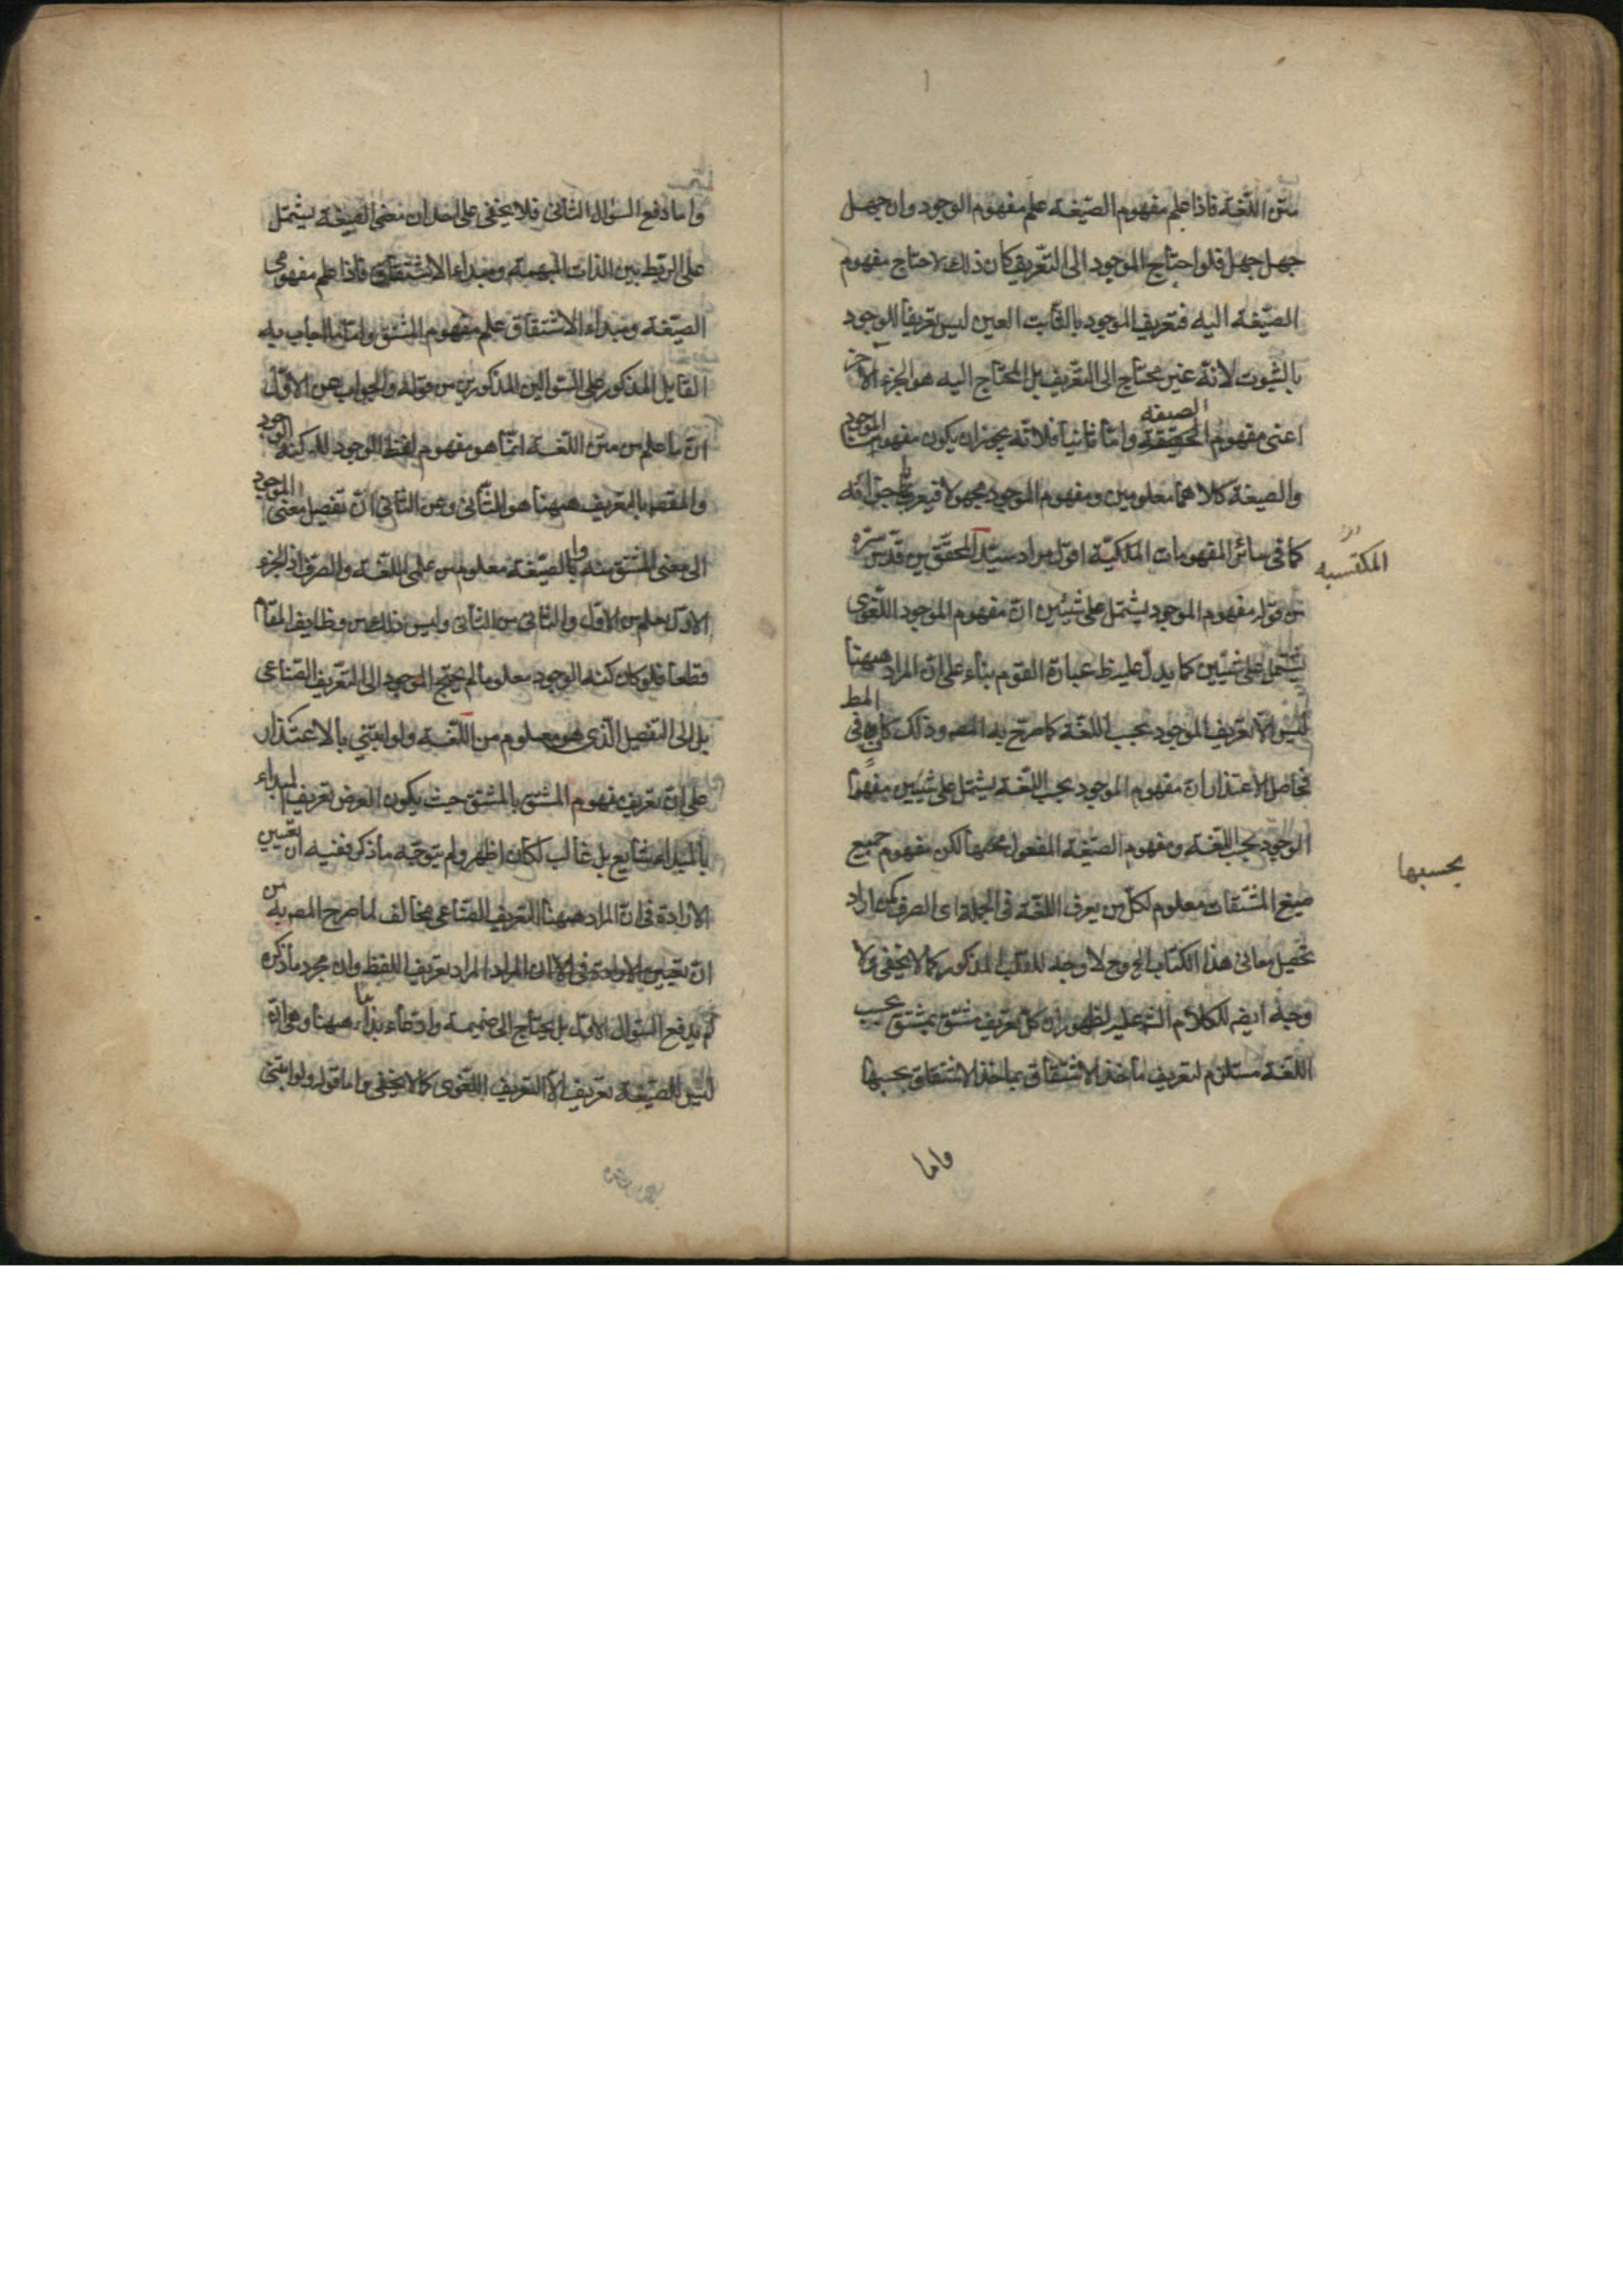 متن اللغة فاذا علم مفهوم الصيغة علم مفهوم الوجود وان جهل
جهل جهل فلو احتاج الموجود الى التعريف كان ذلك لاحتاج مفهوم
الصيغة اليه فتعريف الموجود بالثابت العين ليس تعريفا للوجود
بالثبوت لانه غير محتاج الى التعريف بل المحتاج اليه هو الجزء الآخر
اعنى مفهوم الصيغة واما ثانيا فلانه يجوز ان يكون مفهوم الموجود
والصيغة كلاهما معلومين ومفهوم الموجود مجهولا فيعرف باجزائه
كما فى سائر المفهومات اقول مراد سيد المحققين قدس سره
المكتسبه
من قوله مفهوم الموجود يشتمل على شيئين ان مفهوم الموجود اللغوى
يشتمل على شيئين كما يدل عليه ظ عبارة القوم بناء على ان المراد ههنا
ليس الا تعريف الموجود بحسب اللغة كما صرح به المصه وذلك كاف فى المط
فحاصل الاعتذار ان مفهوم الموجود بحسب اللغة يشتمل على شيئين مفهوم
الوجود بحسب اللغة ومفهوم الصيغة المفعول بحسبها لكن مفهوم جميع
بحسبها
صيغ المشتقات معلوم لكل من يعرف اللغة فى الجملة اى الصرف كمن اراد
تحصيل معانى هذا الكتاب الخ وح لا وجه للقلب المذكور كما لا يخفى ولا
وجه ايضه للكلام الذى عليه لظهور ان كل تعريف مشتق بمشتق بحسب
اللغة مستلزم لتعريف مأخذ الاشتقاق بمأخذ الاشتقاق بحسبها
واما
واما دفع السؤال الثانى فلا يخفى على احد ان معنى الصيغة يشتمل
على الربط بين الذات المبهمة ومبداء الاشتقاق فاذا علم مفهومى
الصيغة ومبداء الاشتقاق علم مفهوم المشتق واما ما اجاب به
القايل المذكور على السؤالين المذكورين من قوله والجواب عن الاول
ان ما علم من متن اللغة انما هو مفهوم لفظ الوجود لا كنه الوجود
والمقصه بالتعريف ههنا هو الثانى وعن الثانى ان تفصيل معنى الموجود
الى معنى المشتق منه والصيغة معلوم من علمى اللغة والصرف اذ الجزء
الاول علم من الاول والثانى من الثانى وليس ذلك من وظايف المقام
قطعا فلو كان كنه الوجود معلوما لم يحتج الموجود الى التعريف الصناعى
بل الى التفصيل الذى هو معلوم من اللغة ولو اعتنى بالاعتذار
على ان تعريف مفهوم المشتق بالمشتق حيث يكون الغرض تعريف المبداء
بالمبداء شايع بل غالب لكان اظهر ولم يتوجه ما ذكر ففيه ان تعيين
الارادة فى ان المراد ههنا التعريف الصناعى مخالف لما صرح المصه به من
ان المراد تعريف اللفظ وان مجرد ما ذكره
لم يدفع السؤال الاول بل يحتاج الى ضميمة وادعاء بداهتها ههنا وهى انه
ليس للصيغة تعريف الا التعريف اللغوى كما لا يخفى واما قوله ولو اعتنى